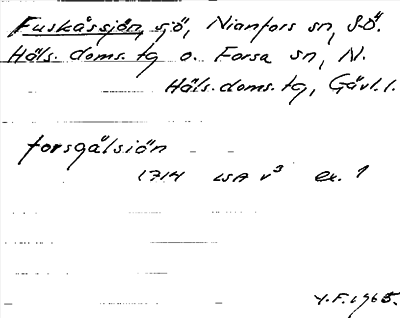 Fuskåssjön, sjö, Nianfors sn, S.Ö.
Häls. doms. tg o. Forsa sn, N.
Häls. doms. tg, Gävl. l.
forsgålsiön
1714 LSA v³ ex. 1
Y.F. 1965.